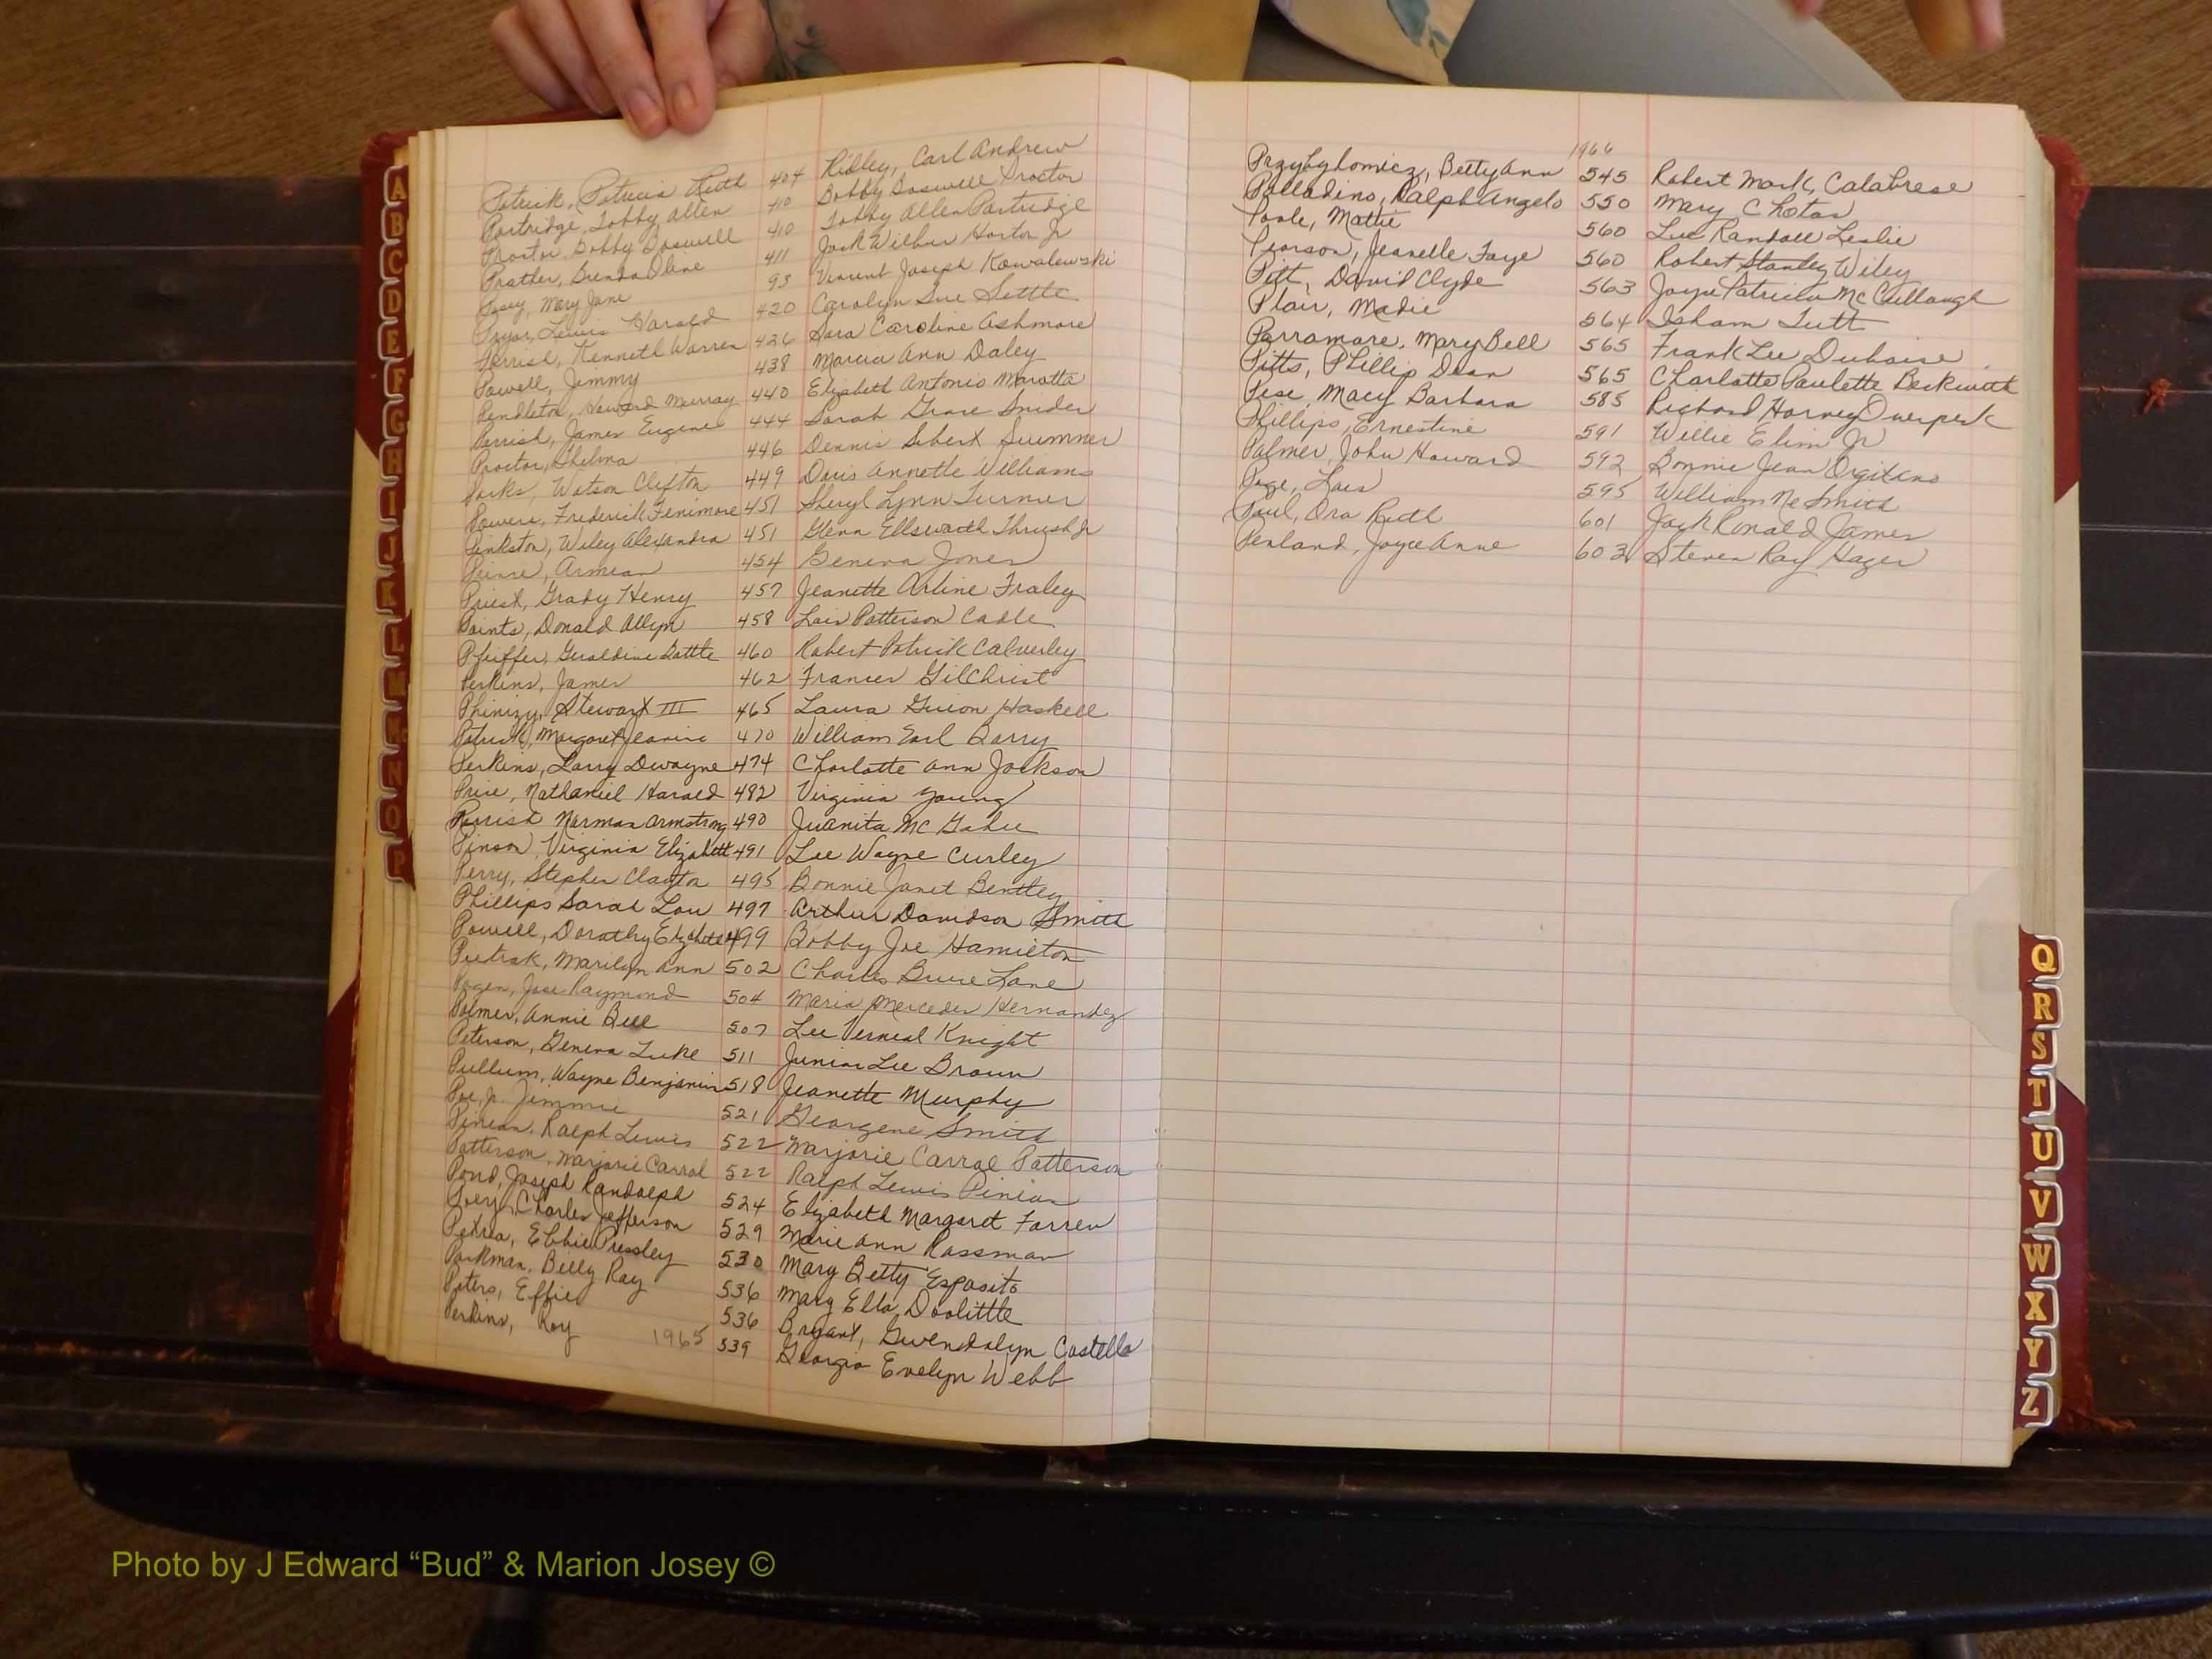 Patrick, Patricia Ruth 404 Ridley, Carl Andrew
Partridge, Tobby Allen 410 Bobby Boswell Proctor
Proctor, Bobby Boswell 410 Tobby Allen Partridge
Prather, Brenda Oline 411 Jack Wilbur Horton Jr
Posey, Mary Jane 93 Vincent Joseph Kowalewski
Pryor, Lewis Harold 420 Carolyn Sue Settle
Parrish, Kenneth Warren 426 Sara Caroline Ashmore
Powell, Jimmy 438 Marcia Ann Daley
Pendleton, Howard Murray 440 Elizabeth Antonio Maratta
Parrish, James Eugene 444 Sarah Grace Snider
Proctor, Thelma 446 Dennis Sebert Sumner
Parks, Watson Clifton 449 Doris Annette Williams
Powers, Frederick Fenimore 451 Sheryl Lynn Turner
Pinkston, Wiley Alexandra 451 Glenn Ellsworth Thrush Jr
Pierre, Armean 454 Geneva Jones
Priest, Grady Henry 457 Jeanette Arline Fraley
Points, Donald Allyn 458 Lois Patterson Cadle
Pfeiffer, Geraldine Battle 460 Robert Patrick Calverley
Perkins, James 462 Frances Gilchrist
Phinizy, Stewart III 465 Laura Guion Haskell
Patrick, Margaret Jeanine 470 William Earl Barry
Perkins, Larry Dwayne 474 Charlotte Ann Jackson
Price, Nathaniel Harold 482 Virginia Young
Parrish Norman Armstrong 490 Juanita McGahee
Pinson, Virginia Elizabeth 491 Lee Wayne Curley
Perry, Stephen Clayton 495 Bonnie Janet Bentley
Phillips Sarah Lou 497 Arthur Davidson Smith
Powell, Dorothy Elizabeth 499 Bobby Joe Hamilton
Pietrak, Marilyn Ann 502 Charles Bruce Lane
Pagen, Jose Raymond 504 Maria Mercedes Hernandez
Palmer, Annie Bell 507 Lee Verneal Knight
Peterson, Geneva Luke 511 Junior Lee Brown
Pullum, Wayne Benjamin 518 Jeanette Murphy
Poe, Jr. Jimmie 521 Georgene Smith
Pinion, Ralph Lewis 522 Marjorie Carral Patterson
Patterson, Marjorie Carral 522 Ralph Lewis Pinion
Pond, Joseph Randolph 524 Elizabeth Margaret Farren
Charles Jefferson 529 Marie Ann Rassman
Petrea, Ebbie Pressley 530 Mary Betty Esposito
Parkman, Billy Ray 536 Mary Ella Doolittle
Peters, Effie 536 Bryant, Gwendolyn Costella
Perkins, Roy 1965 539 Georgia Evelyn Webb
1966
Przybylomicz, Betty Ann 545 Robert Mark, Calabrese
Palladino, Ralph Angelo 550 Mary C Hotas
Poole, Mattie 560 Lee Randall Leslie
Pearson, Jeanelle Faye 560 Robert Stanley Wiley
Pitt, David Clyde 563 Joyce Patricia McCullough
Plair, Madie 564 Isham Tutt
Parramore, Mary Bell 565 Frank Lee Duboise
Pitts, Phillip Dean 565 Charlotte Paulette Beckwith
Pese, Macy Barbara 585 Richard Harvey Overpeck
Phillips, Ernestine 591 Willie Elim Jr
Palmer, John Howard 592 Bonnie Jean
Page, Lois 595 William NeSmith
Paul, Ora Ruth 601 Jack Ronald James
Penland, Joyce Anne 603 Steven Ray Hager
A
B
C
D
E
F
G
H
I
J
K
L
M
N
O
P
Q
R
S
T
U
V
W
X
Y
Z
Photo by J Edward “Bud” & Marion Josey ©